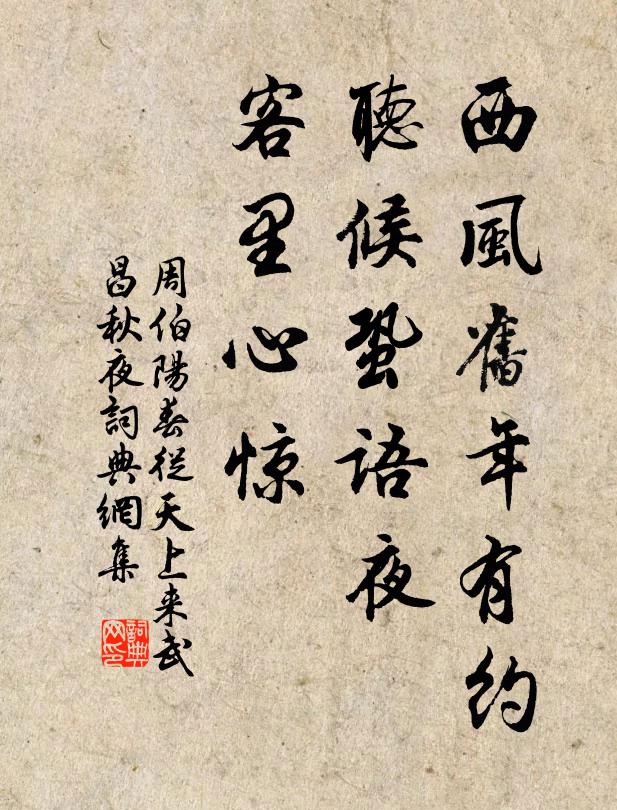 西風舊年有約
聽候蛩語夜
客里心惊
周伯陽春從天上来武
昌秋夜詞典網集
詞典
网印